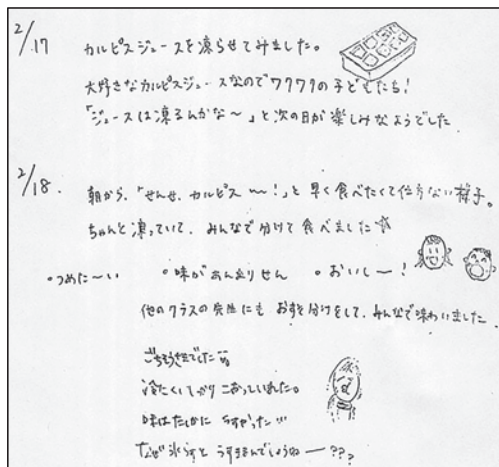 2/17 カルピスジュースを凍らせてみました。
大好きなカルピスジュースなのでワクワクの子どもたち!
「ジュースは凍るんかな〜」と次の日が楽しみなようでした
2/18. 朝から、「せんせ、カルピス〜!」と早く食べたくて仕方ない様子。
ちゃんと凍っていて、みんなで分けて食べました☆
・つめた〜い ・味があんまりせん ・おいし〜!
他のクラスの先生にもおすそ分けをして、みんなで味わいました
ごちそうさまでした
冷たくしっかりこおっていました。
味はたしかにうすかった
なぜ氷らすとうすまるんでしょうねー???